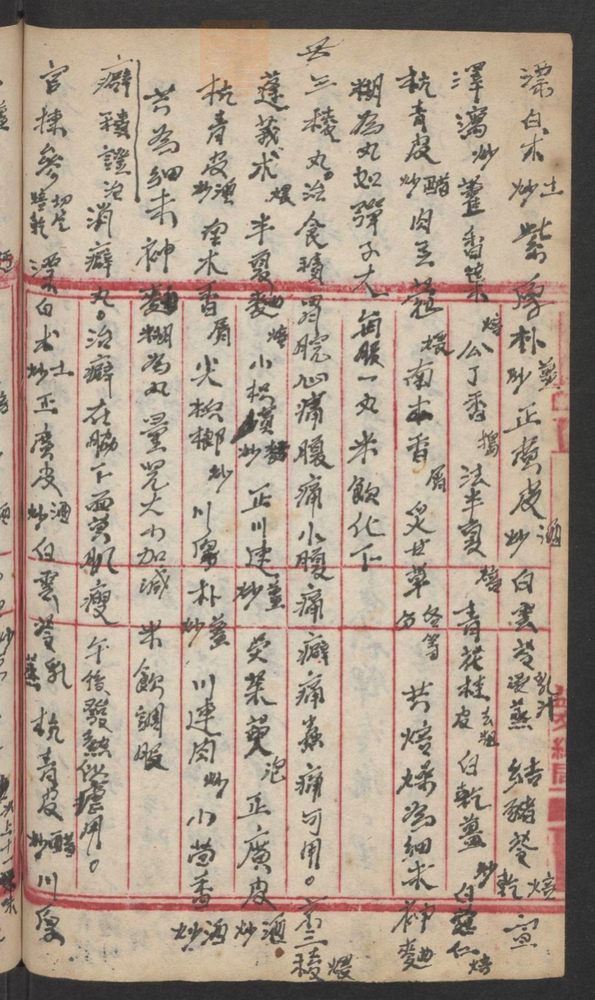 漂白朮土炒 紫厚朴薑炒 正廣皮酒炒 白雲苓乳汁浸蒸 結豬苓焙乾 宣
澤瀉炒 藿香葉焙 公丁香搗 法半夏焙 青花桂去粗皮 白乾薑炒 白蔻仁焙
杭青皮醋炒 肉豆蔻煨 南木香屑 炙甘草各等分 共焙燥為細末 神麯
糊為丸如彈子大 每服一丸米飲化下
三稜丸治食積胃脘心痛腹痛小腹痛癖痛蟲痛可用。京三稜煨
蓬莪朮煨 半夏麯焙 小枳實炒 正川連薑炒 吳茱萸泡 正廣皮酒炒
杭青皮酒炒 木香屑 尖梹榔炒 川厚朴薑炒 川連肉炒 小茴香酒炒
共為細末神麯糊為丸量兒大小加減 米飲調服
癖積證治消癖丸。治癖在脇下面黃肌瘦 午後發熱似瘧用。
官揀參切片焙乾 漂白朮土炒 正廣皮酒炒 白雲苓乳蒸 杭青皮醋炒 川厚